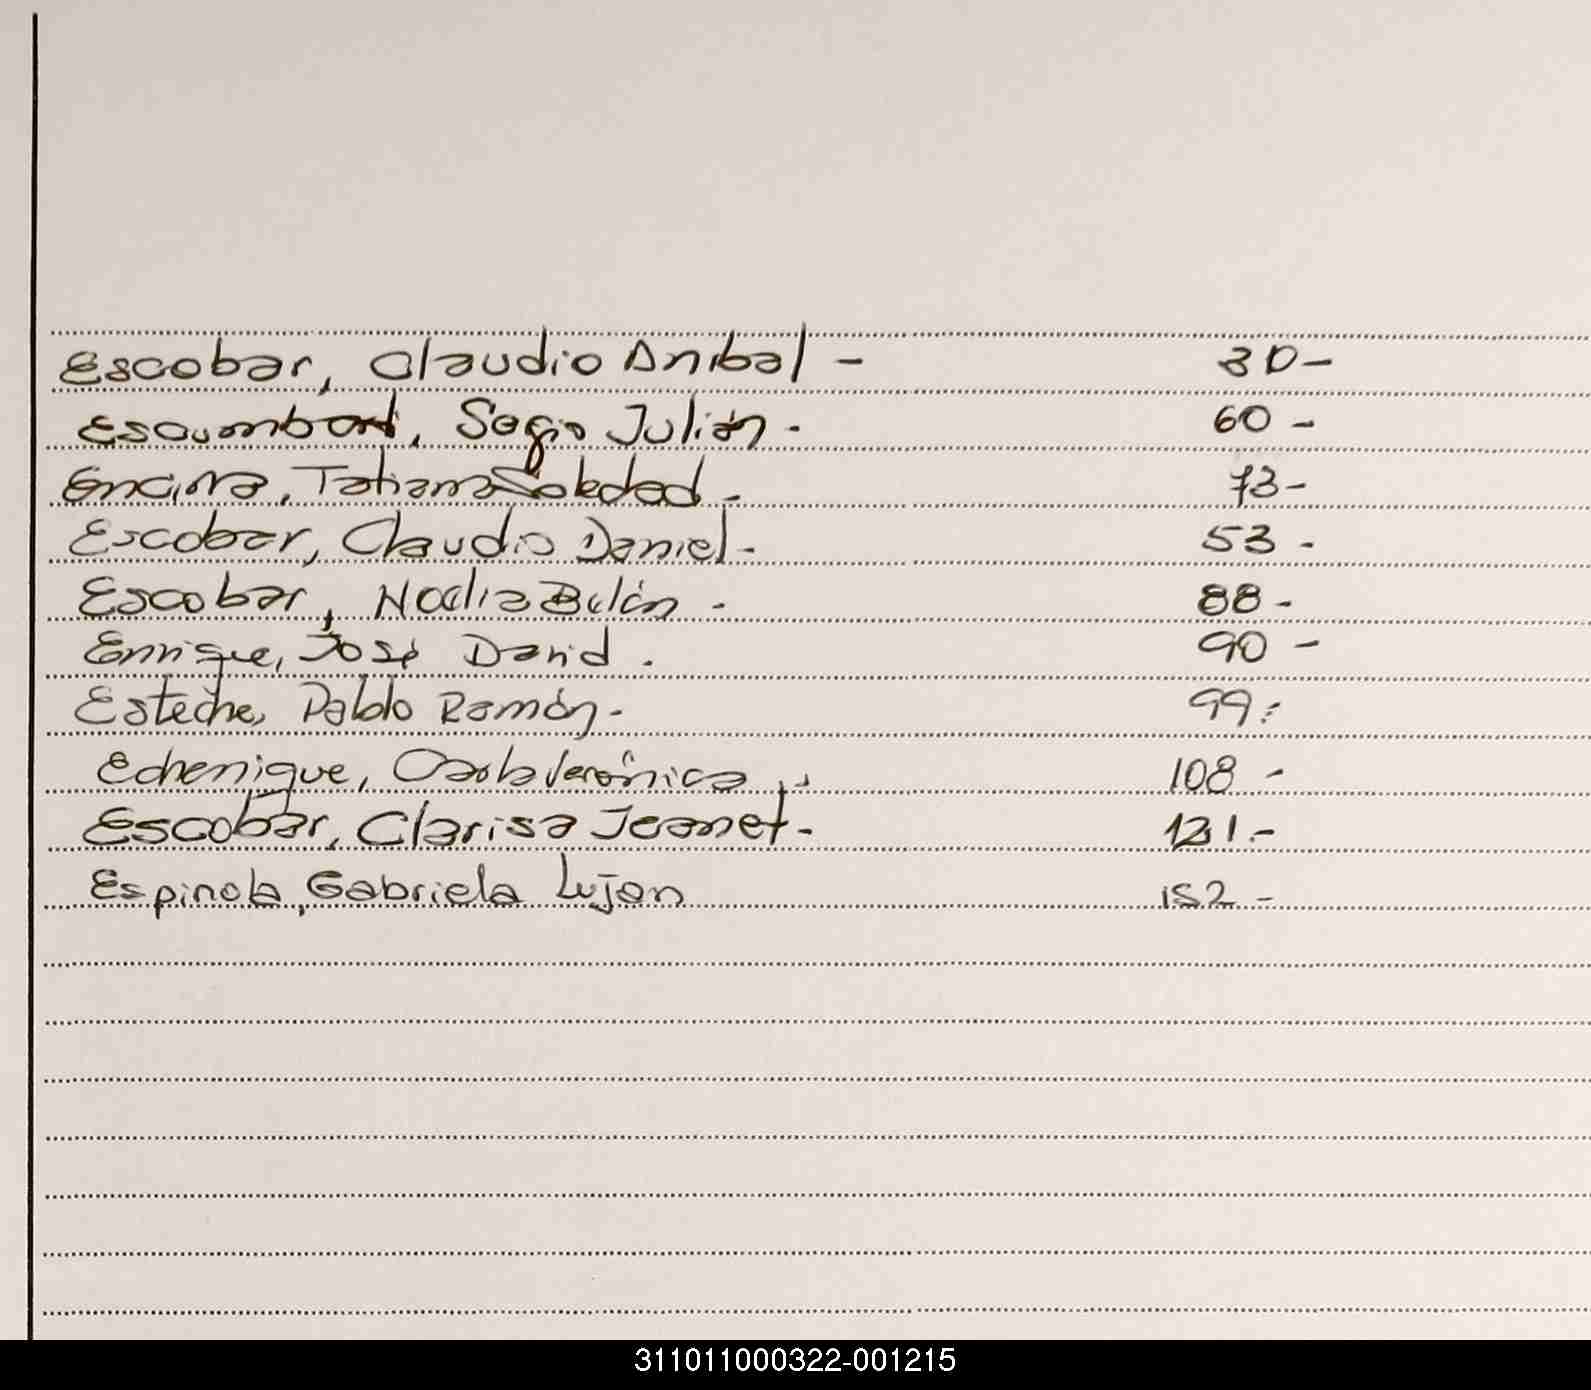 Escobar, Claudio Anibal - 30-
Sergio Julián. 60-
Encina, Tatiana Soledad - 73-
Escobar, Claudio Daniel - 53-
Escobar, Nadia Belén - 88-
Enrique, José David. 90-
Esteche, Pablo Ramón - 99-
Echenique, Carla Verónica 108-
Escobar, Clarisa Jeanet - 131.-
Espinola, Gabriela Lujan 152-
311011000322-001215